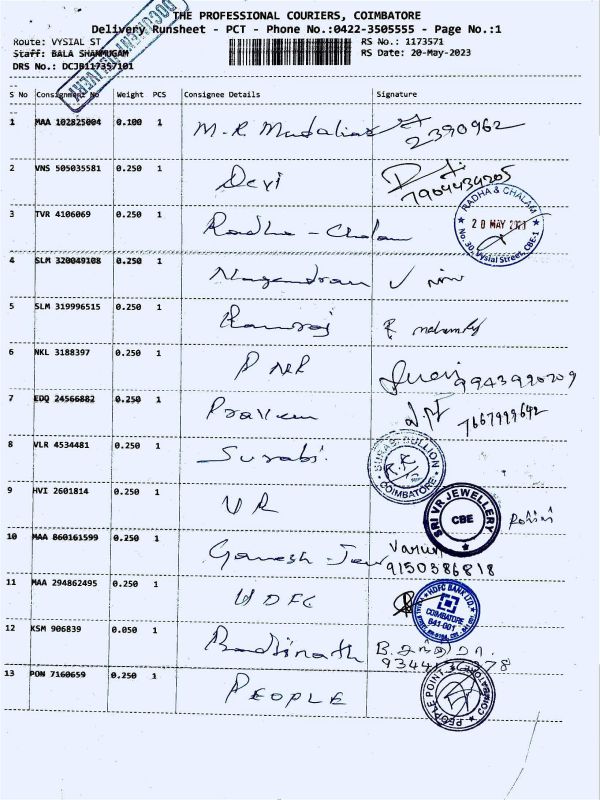 THE PROFESSIONAL COURIERS, COIMBATORE
Delivery Runsheet - PCT - Phone No.:0422-3505555 - Page No.:1
Route: VYSIAL ST RS No.: 1173571
Staff: BALA SHANMUGAM RS Date: 20-May-2023
DRS No.: DCJB117357101
S No Consignment No Weight PCS Consignee Details Signature
1 MAA 102825004 0.100 1 M.R Mudaliar 2390962
2 VNS 505035581 0.250 1 Devi 7904439205
3 TVR 4106069 0.250 1 Radha - Chalam
RADHA & CHALAM
20 MAY
No. 30, Vysial Street, CBE-1
4 SLM 320049108 0.250 1 Nagendran
5 SLM 319996515 0.250 1 Ramraj R
6 NKL 3188397 0.250 1 P NR 9943990209
7 EDQ 24566882 0.250 1 Praveen 7667999642
8 VLR 4534481 0.250 1 Surabi
BULLION
COIMBATORE
9 HVI 2601814 0.250 1 VR
SRI VR JEWELLERY
CBE
10 MAA 860161599 0.250 1 Ganesh - Jew Varun
9150386818
11 MAA 294862495 0.250 1 HDFC
HDFC BANK LTD.
COIMBATORE
641-001
12 KSM 906839 0.050 1 Badrinath
13 PON 7160659 0.250 1 PEOPLE
PEOPLE POINT